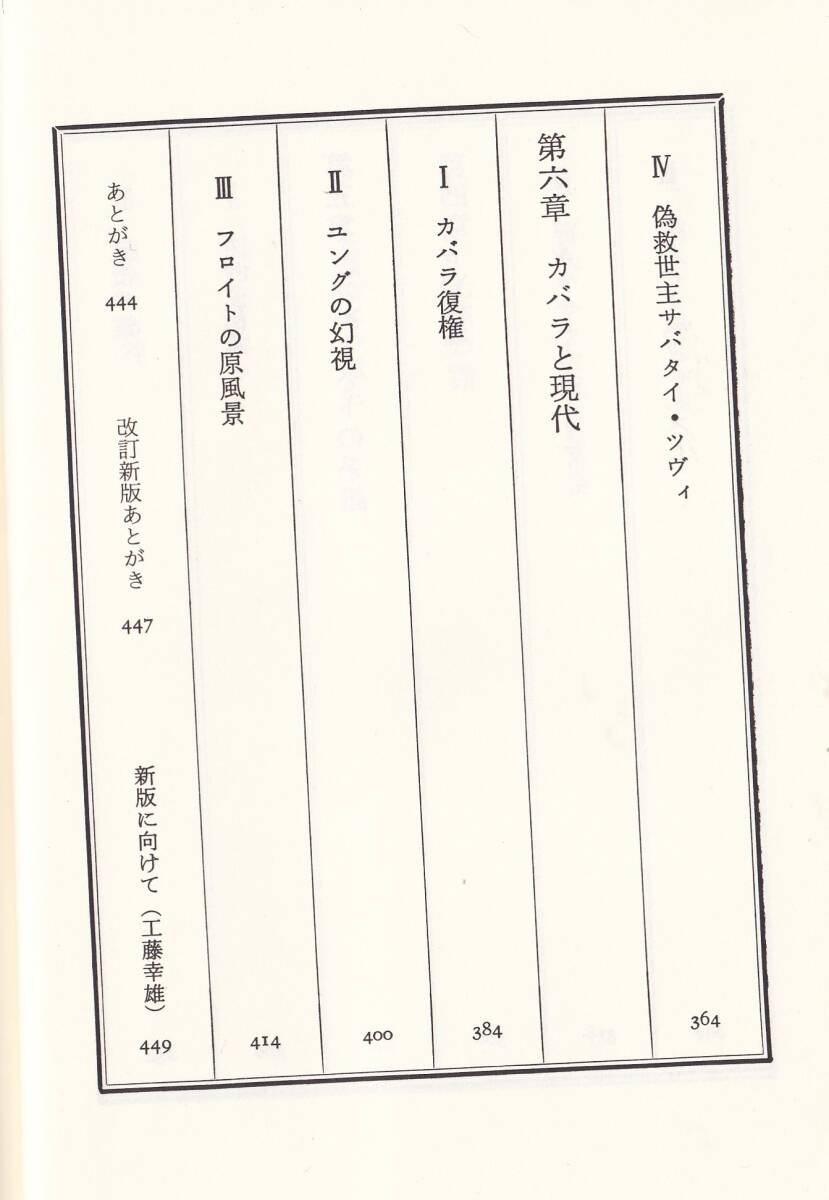 Ⅳ 偽救世主サバタイ・ツヴィ 364
第六章 カバラと現代
Ⅰ カバラ復権 384
Ⅱ ユングの幻視 400
Ⅲ フロイトの原風景 414
あとがき 444 改訂新版あとがき 447 新版に向けて（工藤幸雄） 449